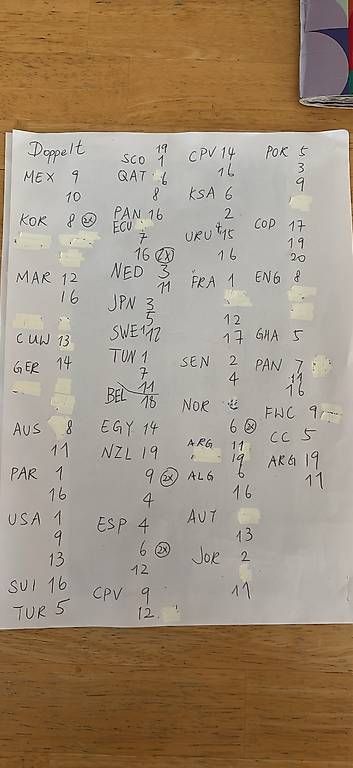 Doppelt
MEX 9
10
KOR 8 2x
MAR 12
16
CUW 13
GER 14
AUS 8
11
PAR 1
16
USA 1
9
13
SUI 16
TUR 5
19
SCO 1
QAT 6
8
PAN 16
ECU
7
16 2x
NED 3
11
JPN 3
5
SWE 12
TUN 1
7
BEL 11
18
EGY 14
NZL 19
9 2x
4
ESP 4
6 2x
12
CPV 9
12
CPV 14
16
KSA 6
2
URU 15
16
FRA 1
12
17
SEN 2
4
NOR
6 2x
ARG 11
19
ALG 6
16
AUT
13
JOR 2
11
POR 5
3
9
COD 17
19
20
ENG 8
GHA 5
PAN 7
11
16
FWC 9
CC 5
ARG 19
11